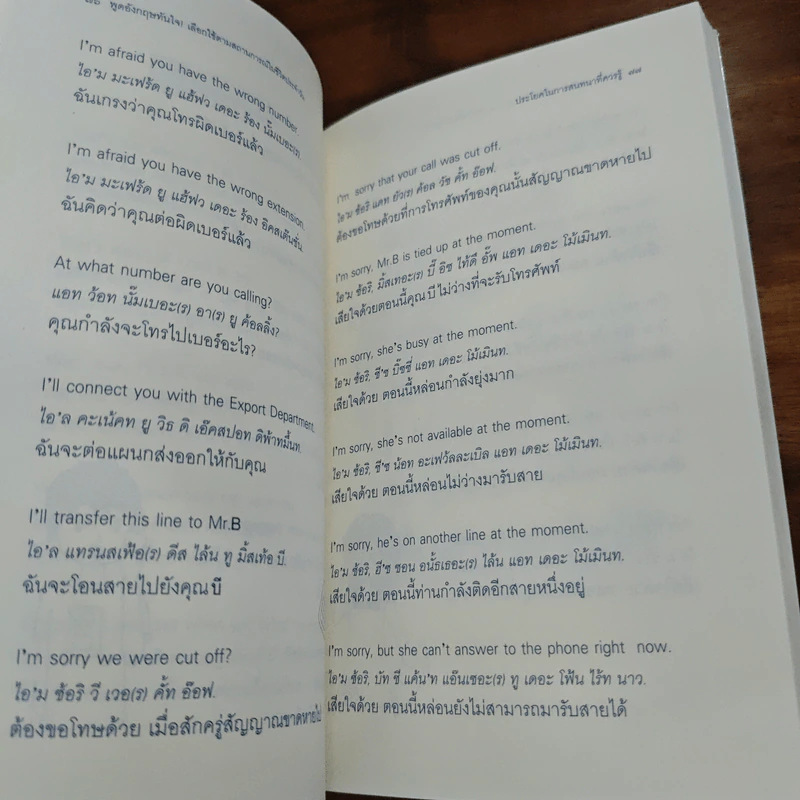 ๘๖ พูดอังกฤษทันใจ! เลือกใช้ตามสถานการณ์ในชีวิตประจำวัน
I'm afraid you have the wrong number.
ไอ'ม มะเฟร้ด ยู แฮ้ฟว เดอะ ร้อง นั้มเบอะ(ร)
ฉันเกรงว่าคุณโทรผิดเบอร์แล้ว
I'm afraid you have the wrong extension.
ไอ'ม มะเฟร้ด ยู แฮ้ฟว เดอะ ร้อง อิคสเต๊นชั่น
ฉันคิดว่าคุณต่อผิดเบอร์แล้ว
At what number are you calling?
แอท ว้อท นั๊มเบอะ(ร) อา(ร) ยู ค้อลลิ้ง?
คุณกำลังจะโทรไปเบอร์อะไร?
I'll connect you with the Export Department.
ไอ'ล คะเน้คท ยู วิธ ดิ เอ๊คสปอท ดิพ้าทมึ้นท.
ฉันจะต่อแผนกส่งออกให้กับคุณ
I'll transfer this line to Mr.B
ไอ'ล แทรนสเฟ้อ(ร) ดีส ไล้น ทู มิ้สเท้อ บี.
ฉันจะโอนสายไปยังคุณบี
I'm sorry we were cut off?
ไอ'ม ซ้อริ วี เวอ(ร) คั้ท อ๊อฟ.
ต้องขอโทษด้วย เมื่อสักครู่สัญญาณขาดหายไป
ประโยคในการสนทนาที่ควรรู้ ๘๗
I'm sorry that your call was cut off.
ไอ'ม ซ้อริ แดท ยัวร(ร) ค้อล วัซ คั้ท อ๊อฟ.
ต้องขอโทษด้วยที่การโทรศัพท์ของคุณนั้นสัญญาณขาดหายไป
I'm sorry, Mr.B is tied up at the moment.
ไอ'ม ซ้อริ, มิ้สเทอะ(ร) บี๊ อิซ ไท้ดี อั๊พ แอท เดอะ โม้เมินท.
เสียใจด้วยตอนนี้คุณบีไม่ว่างที่จะรับโทรศัพท์
I'm sorry, she's busy at the moment.
ไอ'ม ซ้อริ, ชี'ซ บิ๊ซซี่ แอท เดอะ โม้เมินท.
เสียใจด้วย ตอนนี้หล่อนกำลังยุ่งมาก
I'm sorry, she's not available at the moment.
ไอ'ม ซ้อริ, ชี'ซ น้อท อะเฟวัลละเบิล แอท เดอะ โม้เมินท.
เสียใจด้วย ตอนนี้หล่อนไม่ว่างมารับสาย
I'm sorry, he's on another line at the moment.
ไอ'ม ซ้อริ, ฮี'ซ ซอน อนั้ธเธอะ(ร) ไล้น แอท เดอะ โม้เมินท.
เสียใจด้วย ตอนนี้ท่านกำลังติดอีกสายหนึ่งอยู่
I'm sorry, but she can't answer to the phone right now.
ไอ'ม ซ้อริ, บัท ชี แค้น'ท แอ๊นเซอะ(ร) ทู เดอะ โฟ้น ไร้ท นาว.
เสียใจด้วย ตอนนี้หล่อนยังไม่สามารถมารับสายได้